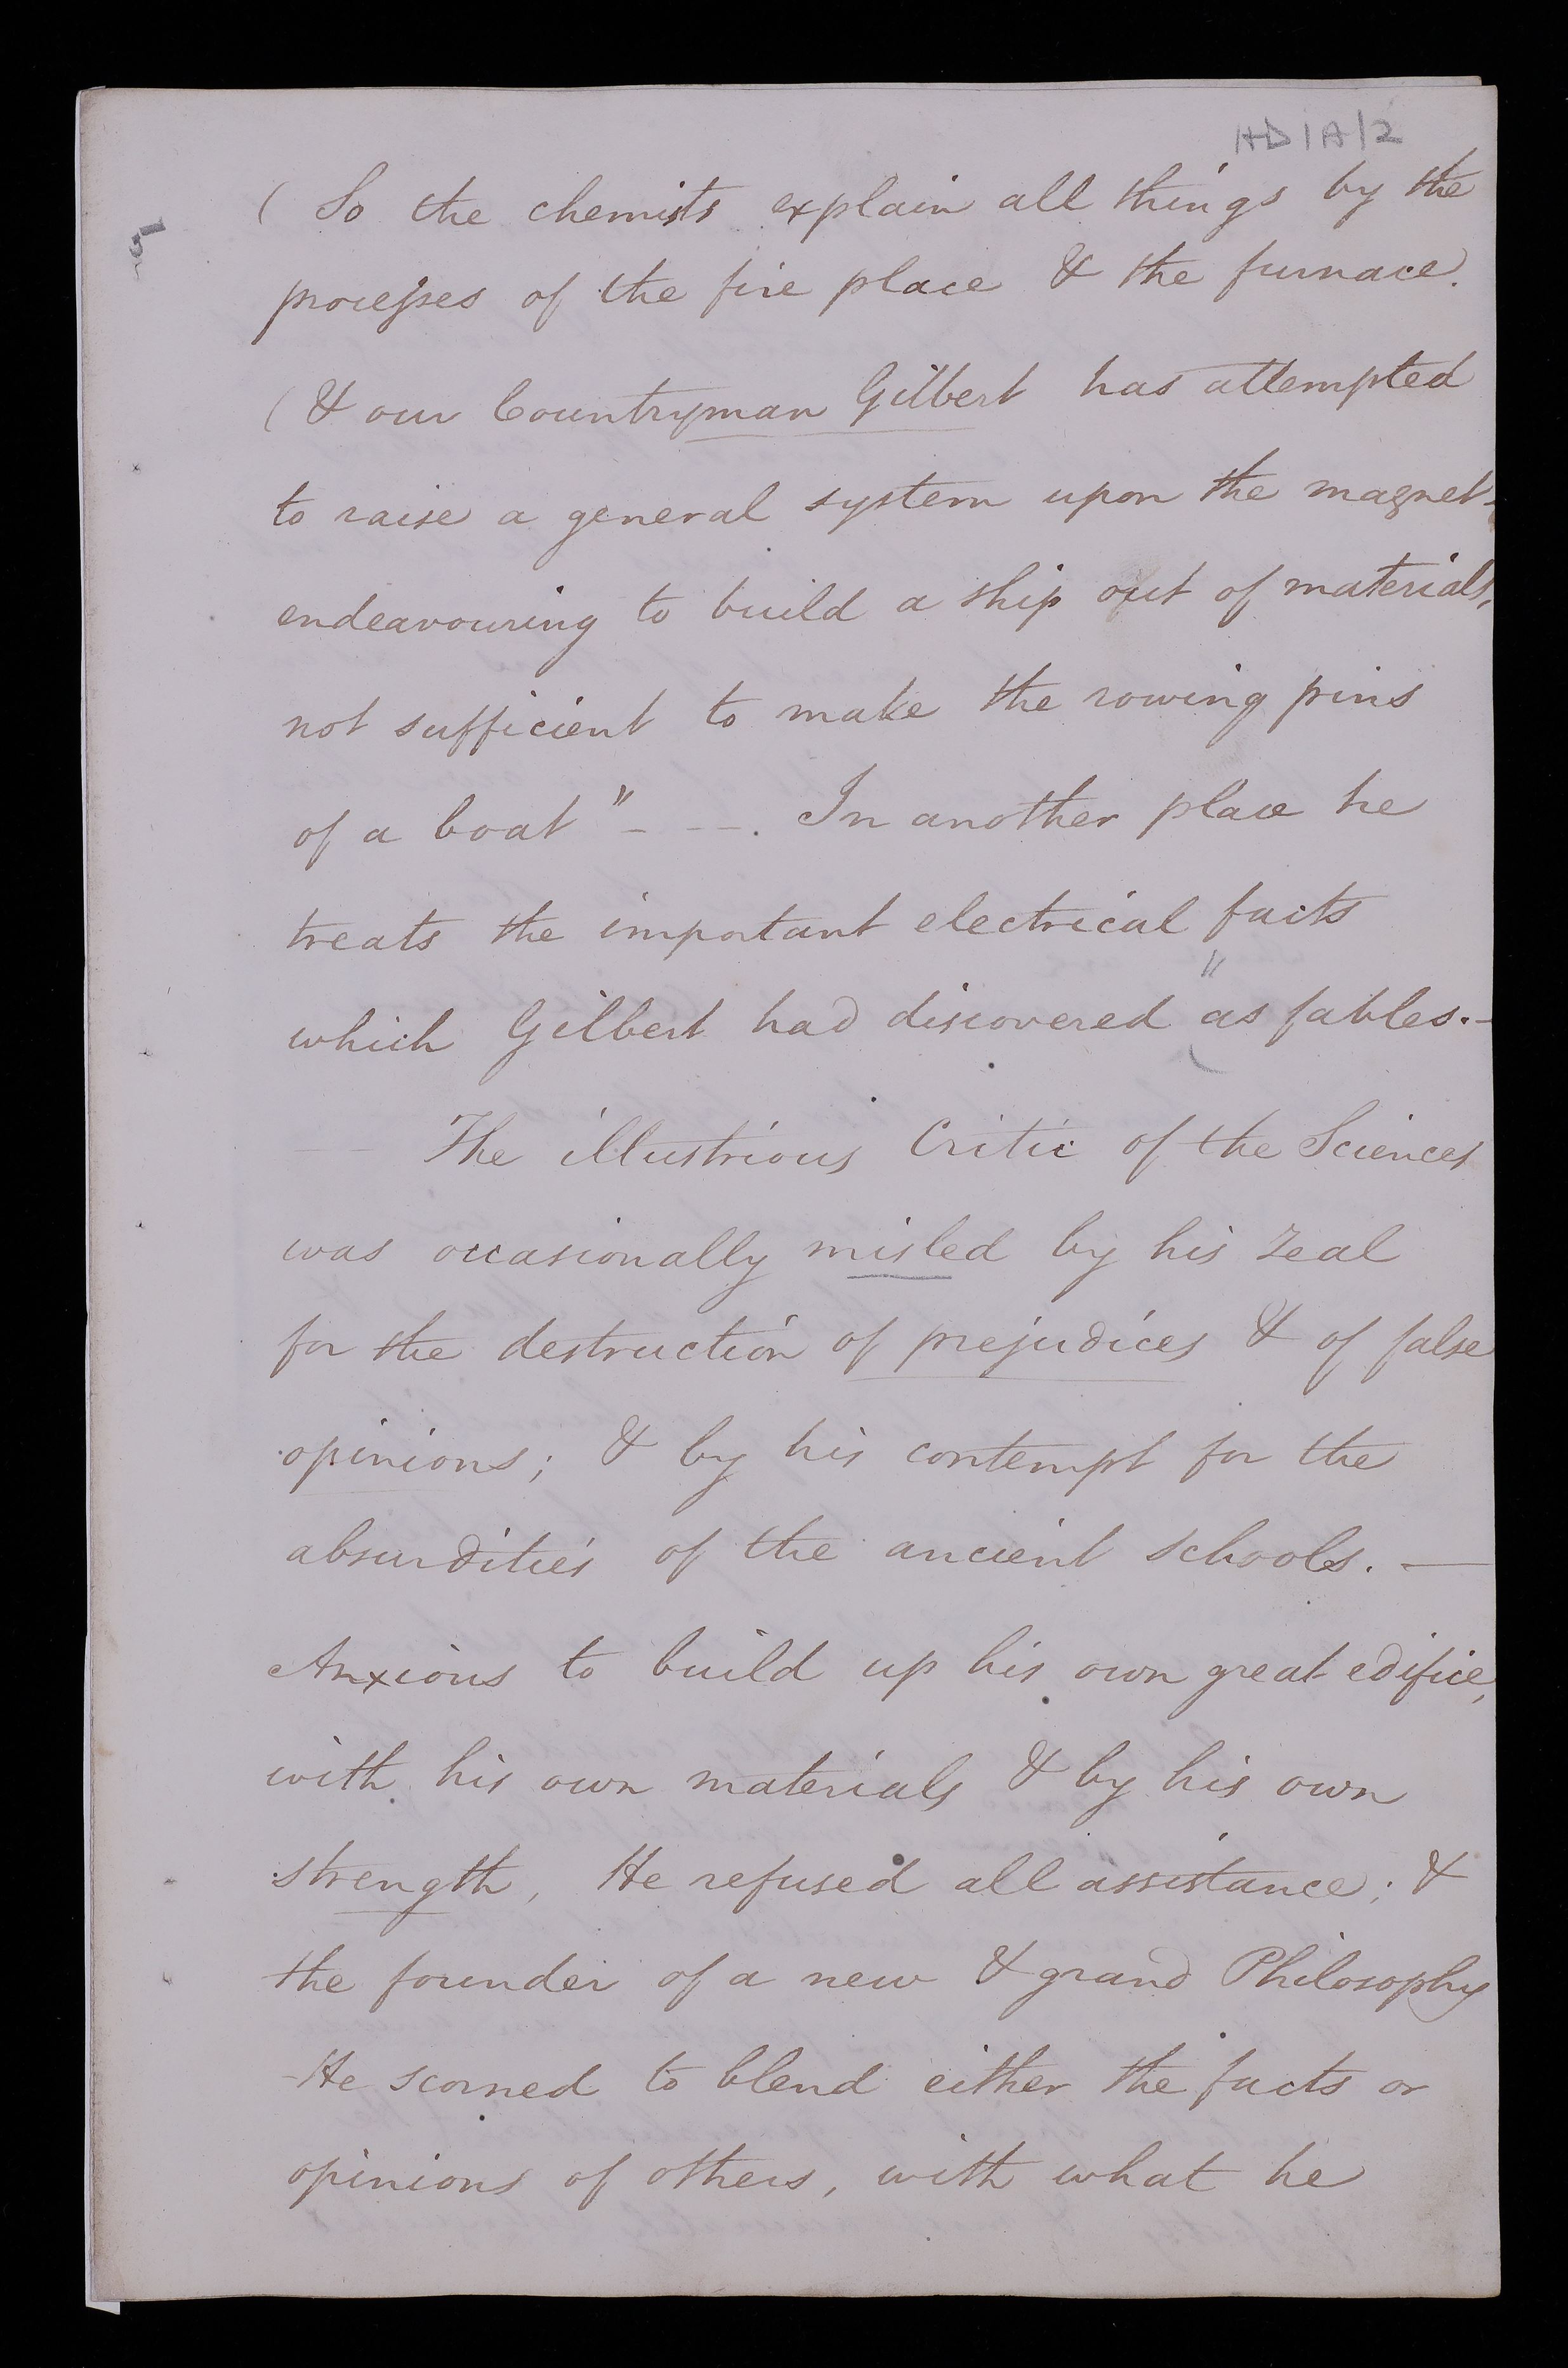 HD/A/2
5
( So the chemists explain all things by the
processes of the fire place & the furnace.
( & our Countryman Gilbert has attempted
to raise a general system upon the magnet -
endeavouring to build a ship out of materials,
not sufficient to make the rowing pins
of a boat" - - -. In another place he
treats the important electrical facts
which Gilbert had discovered "as fables. -
The illustrious Critic of the Sciences
was occasionally misled by his zeal
for the destruction of prejudices & of false
opinions; & by his contempt for the
absurdities of the ancient schools. —
Anxious to build up his own great edifice,
with his own materials & by his own
strength, He refused all assistance; &
the founder of a new & grand Philosophy
He scorned to blend either the facts or
opinions of others, with what he